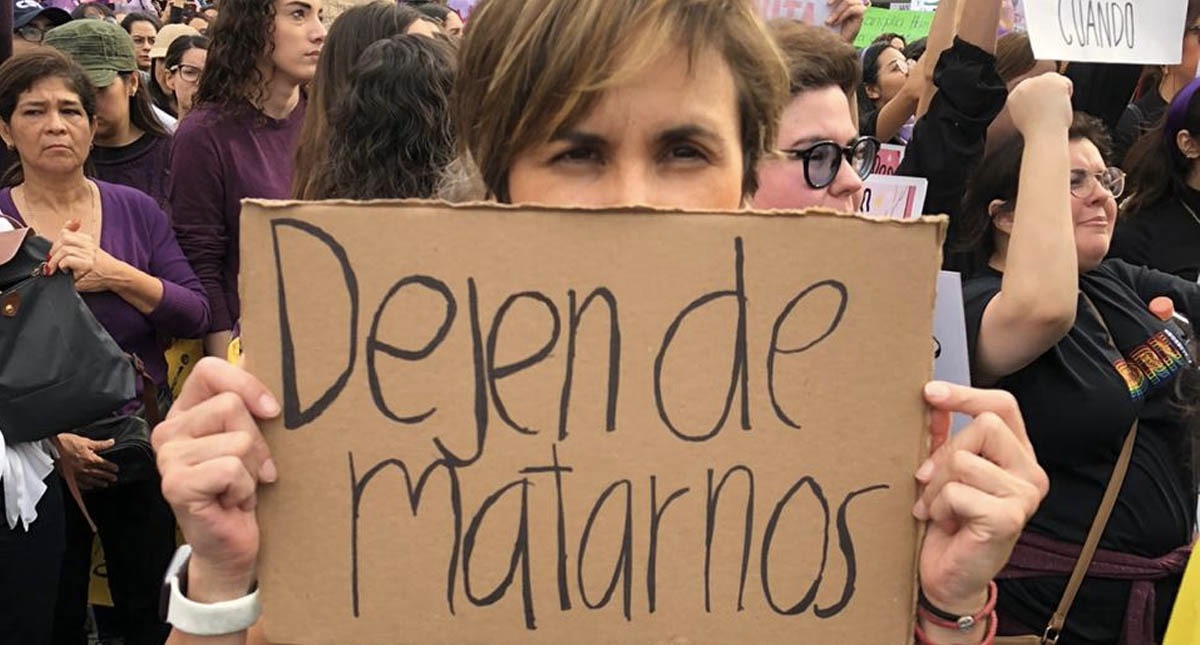 CUANDO
Dejen de
matarnos